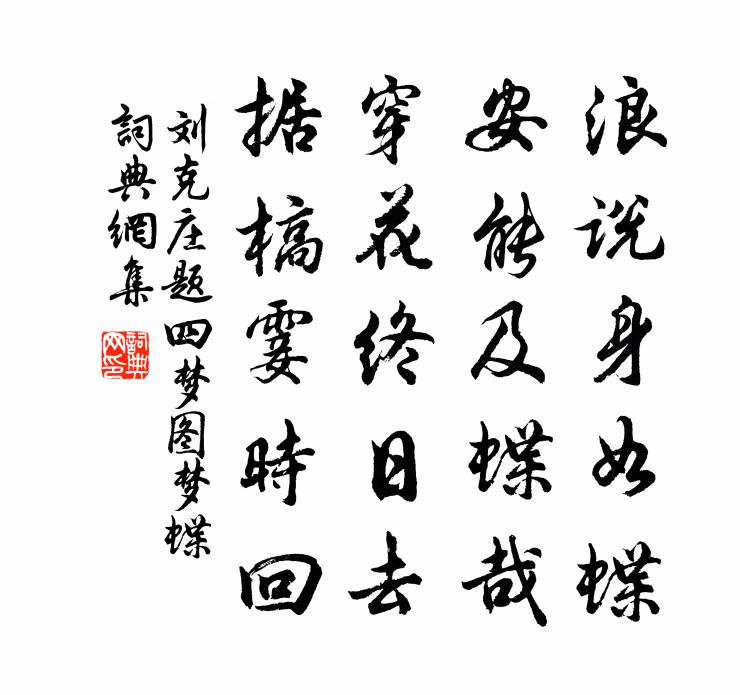 浪说身如蝶
安能及蝶哉
穿花终日去
据槁霎時回
刘克庄题四梦图梦蝶
詞典網集
詞典网印